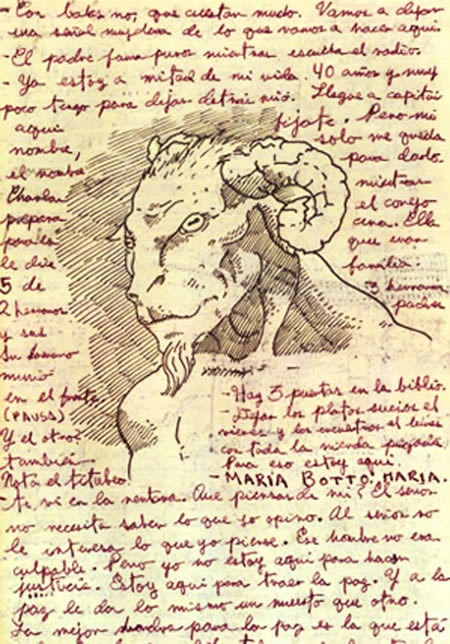 - Con balas no, que cuestan mucho. Vamos a dejar
una señal muy clara de lo que vamos a hacer aquí.
- El padre fuma puros mientras escucha el radio.
- Ya estoy a mitad de mi vida. 40 años y muy
poco tengo para dejar detrás mío. Llegué a capitán
fíjate. Pero mi
aquí solo me queda
nombre, para darlo
el nombre mientras
Charlan el conejo
prepara cena. Ella
para la que eran
le dice familia.
5 de 3 hermanos
2 hermanos padres
y sus
Su hermano
murió
en el frente - Hay 3 puertas en la biblio.
(PAUSA) - Dejan los platos sucios el
Y el otro viernes y los encuentras el lunes
también con toda la mierda pegada.
Nota el titubeo Para eso estoy aquí.
- MARIA BOTTO. MARIA.
- Te vi en la mentira. Qué piensas de mí? El señor
no necesita saber lo que yo opino. Al señor no
le interesa lo que yo piense. Ese hombre no era
culpable. Pero yo no estoy aquí para hacer
justicia. Estoy aquí para traer la paz. Y a la
paz le da lo mismo un muerto que otro.
La mejor para la paz es la que está